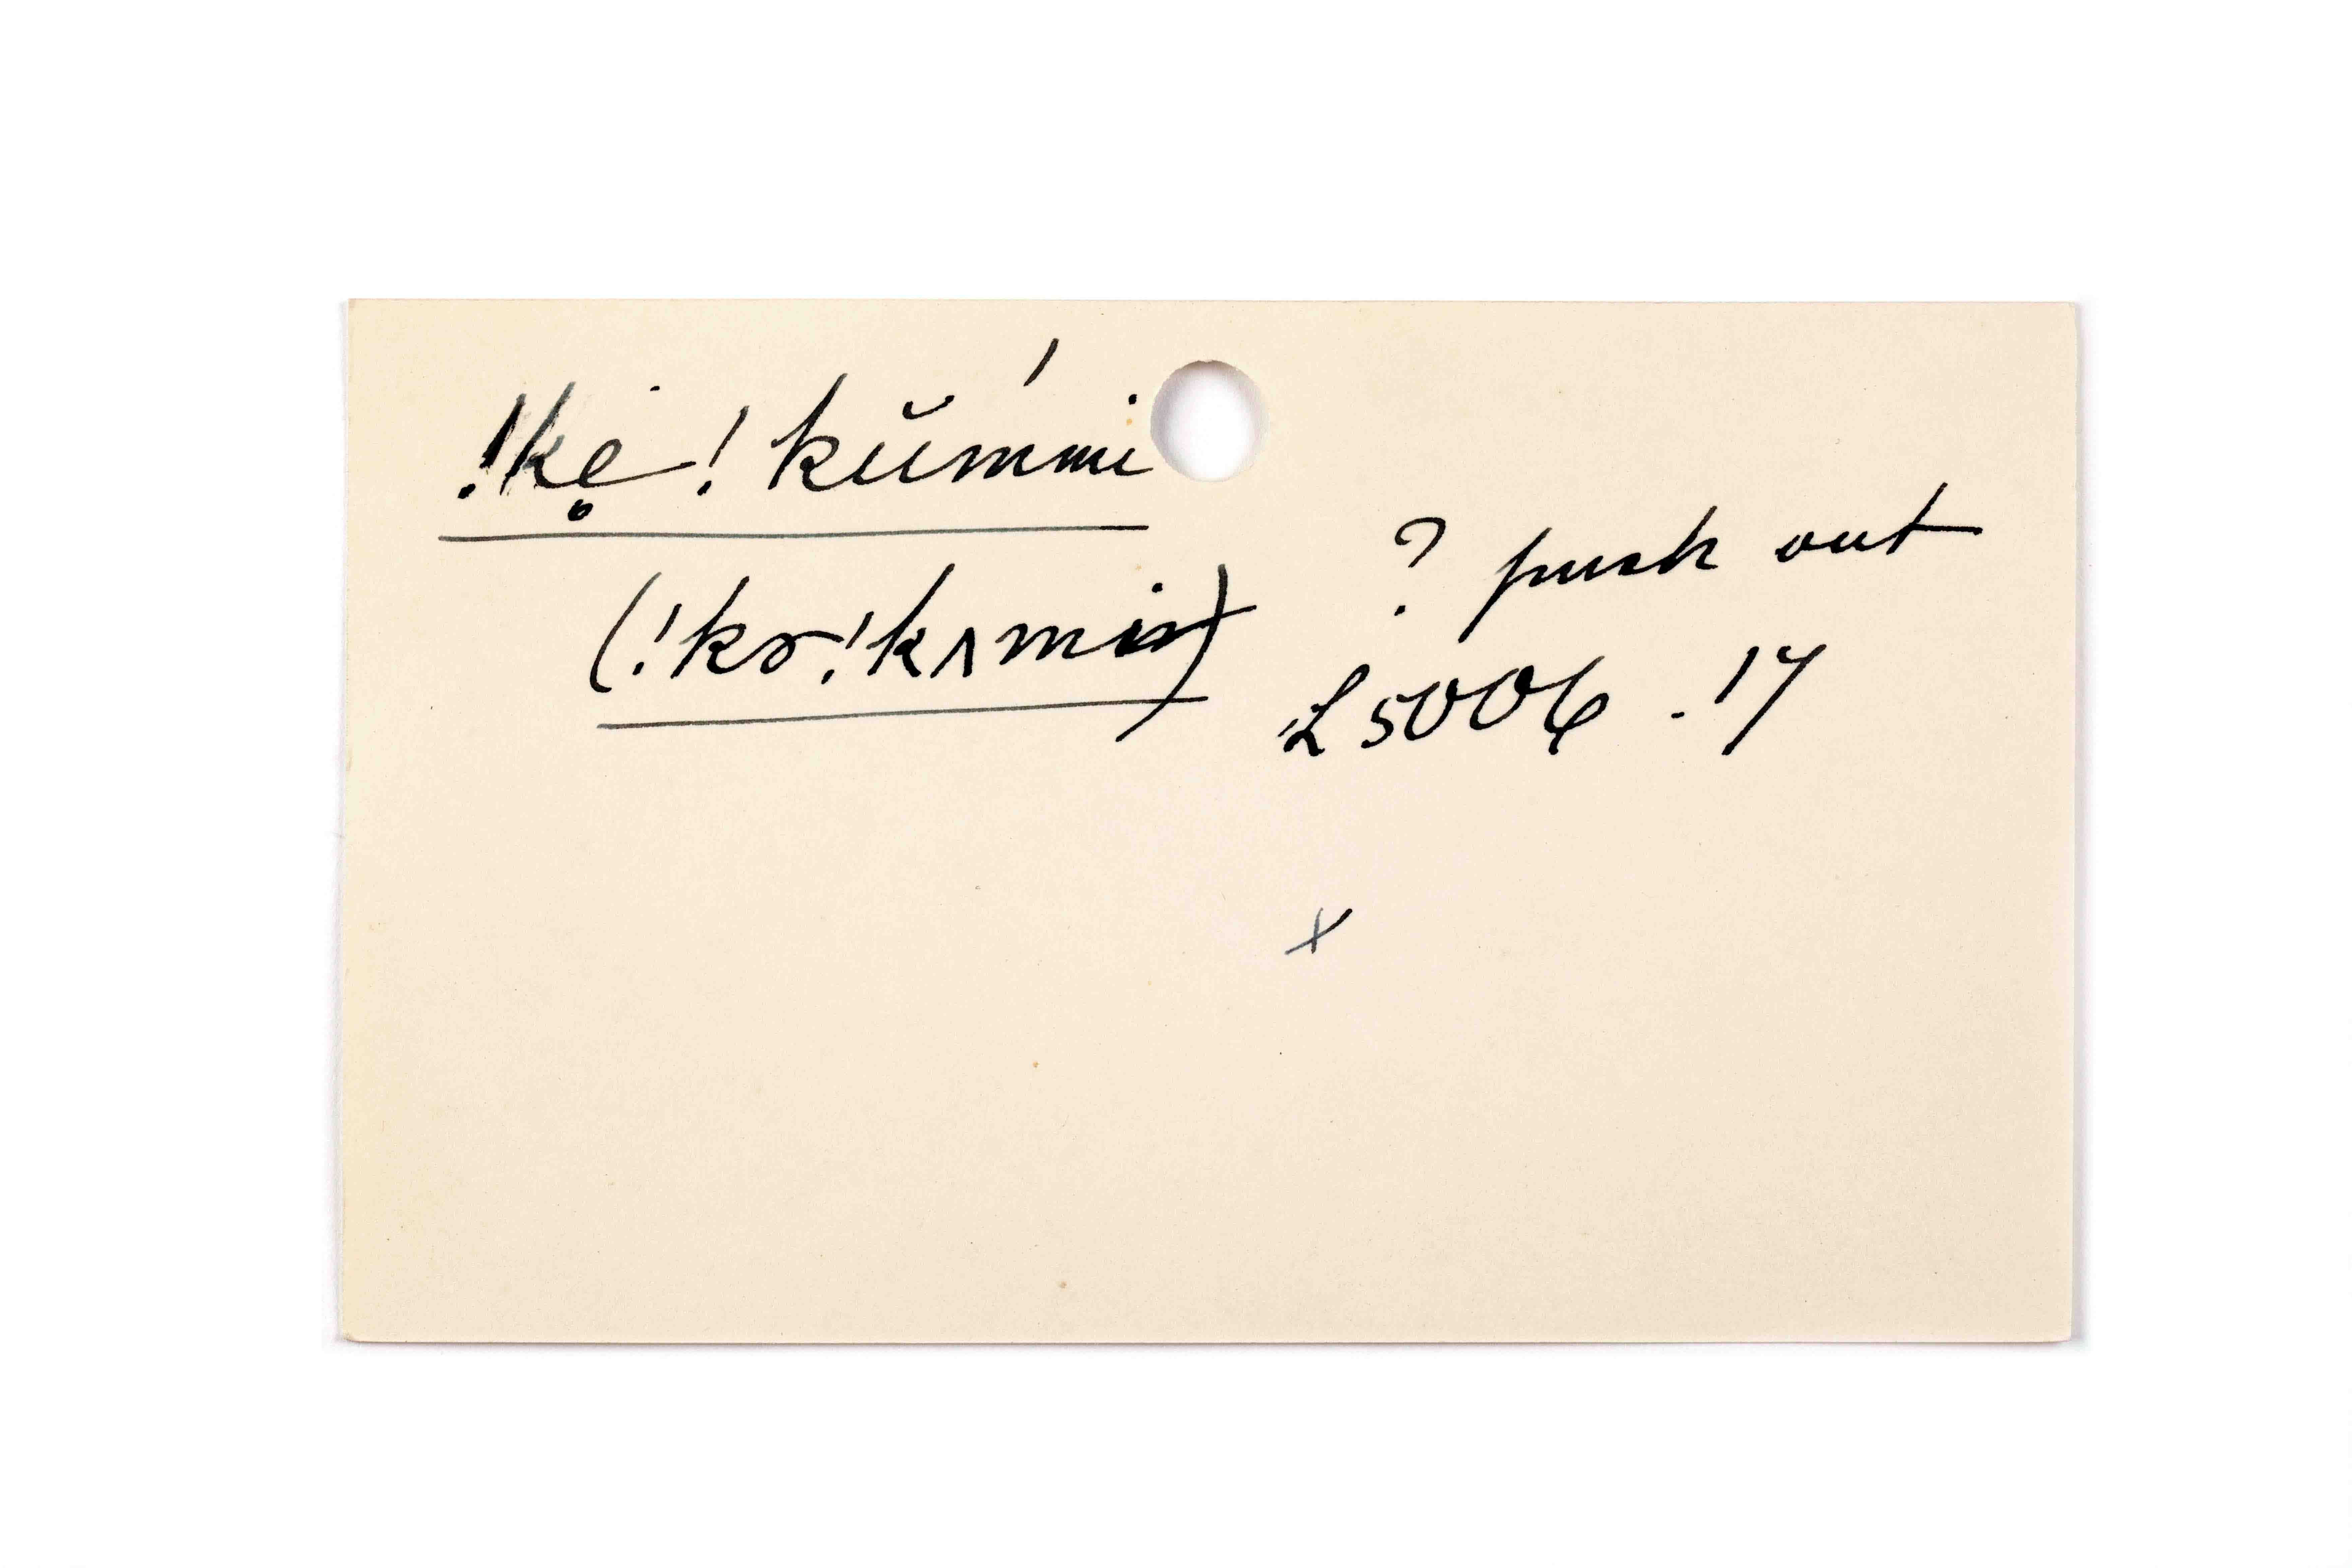 !kẹ !kŭḿmi
(!kɤ!kʌmin) ? push out
L 5006 . 17
x